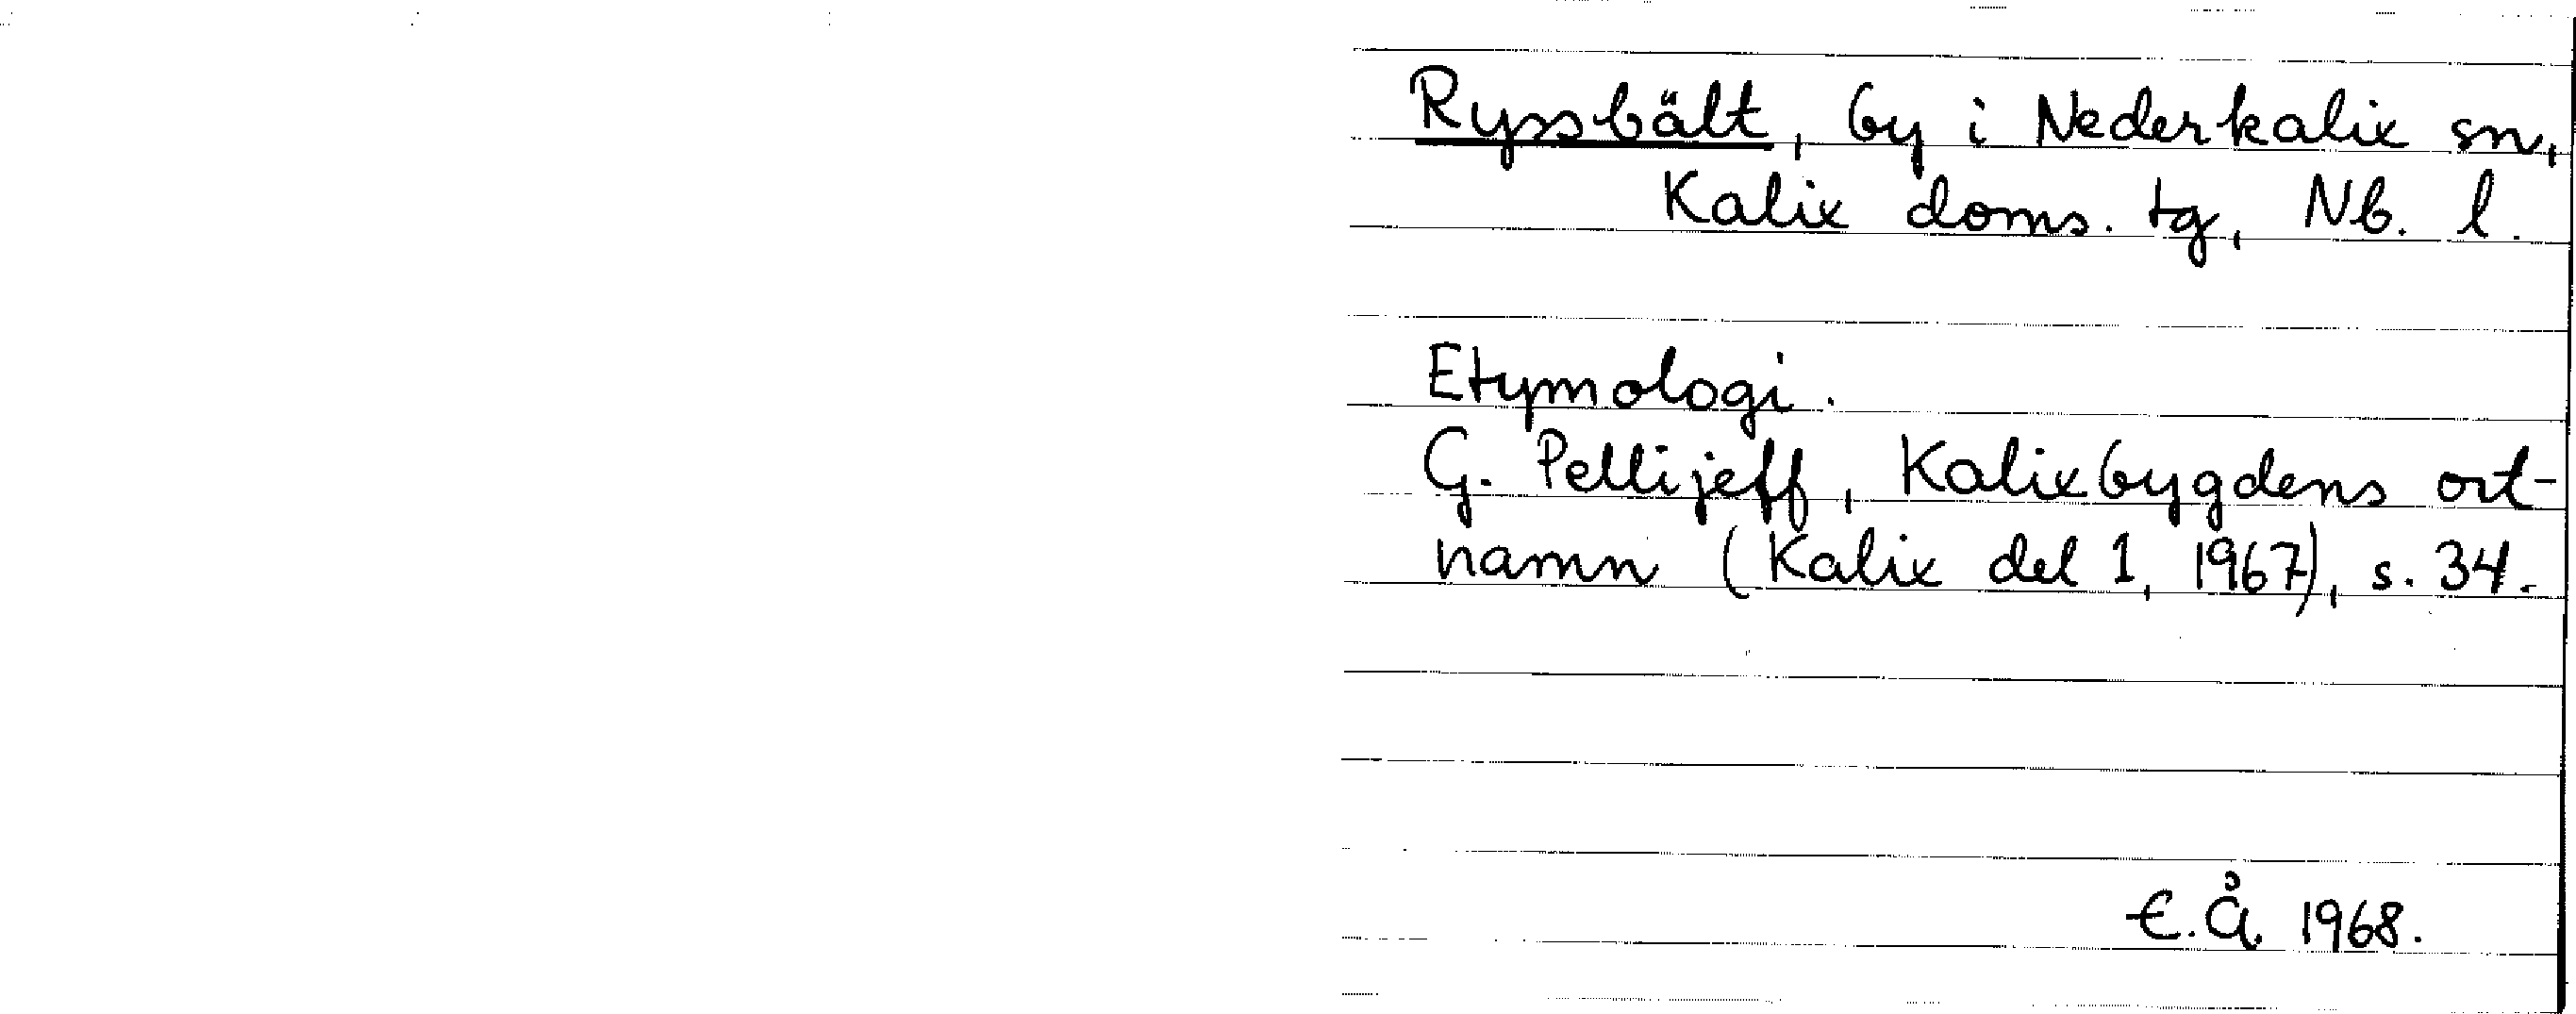 Ryssbält, by i Nederkalix sn,
Kalix doms. tg, Nb. l.
Etymologi.
G. Pellijeff, Kalixbygdens ort-
namn (Kalix del 1, 1967), s. 34.
E.Å 1968.